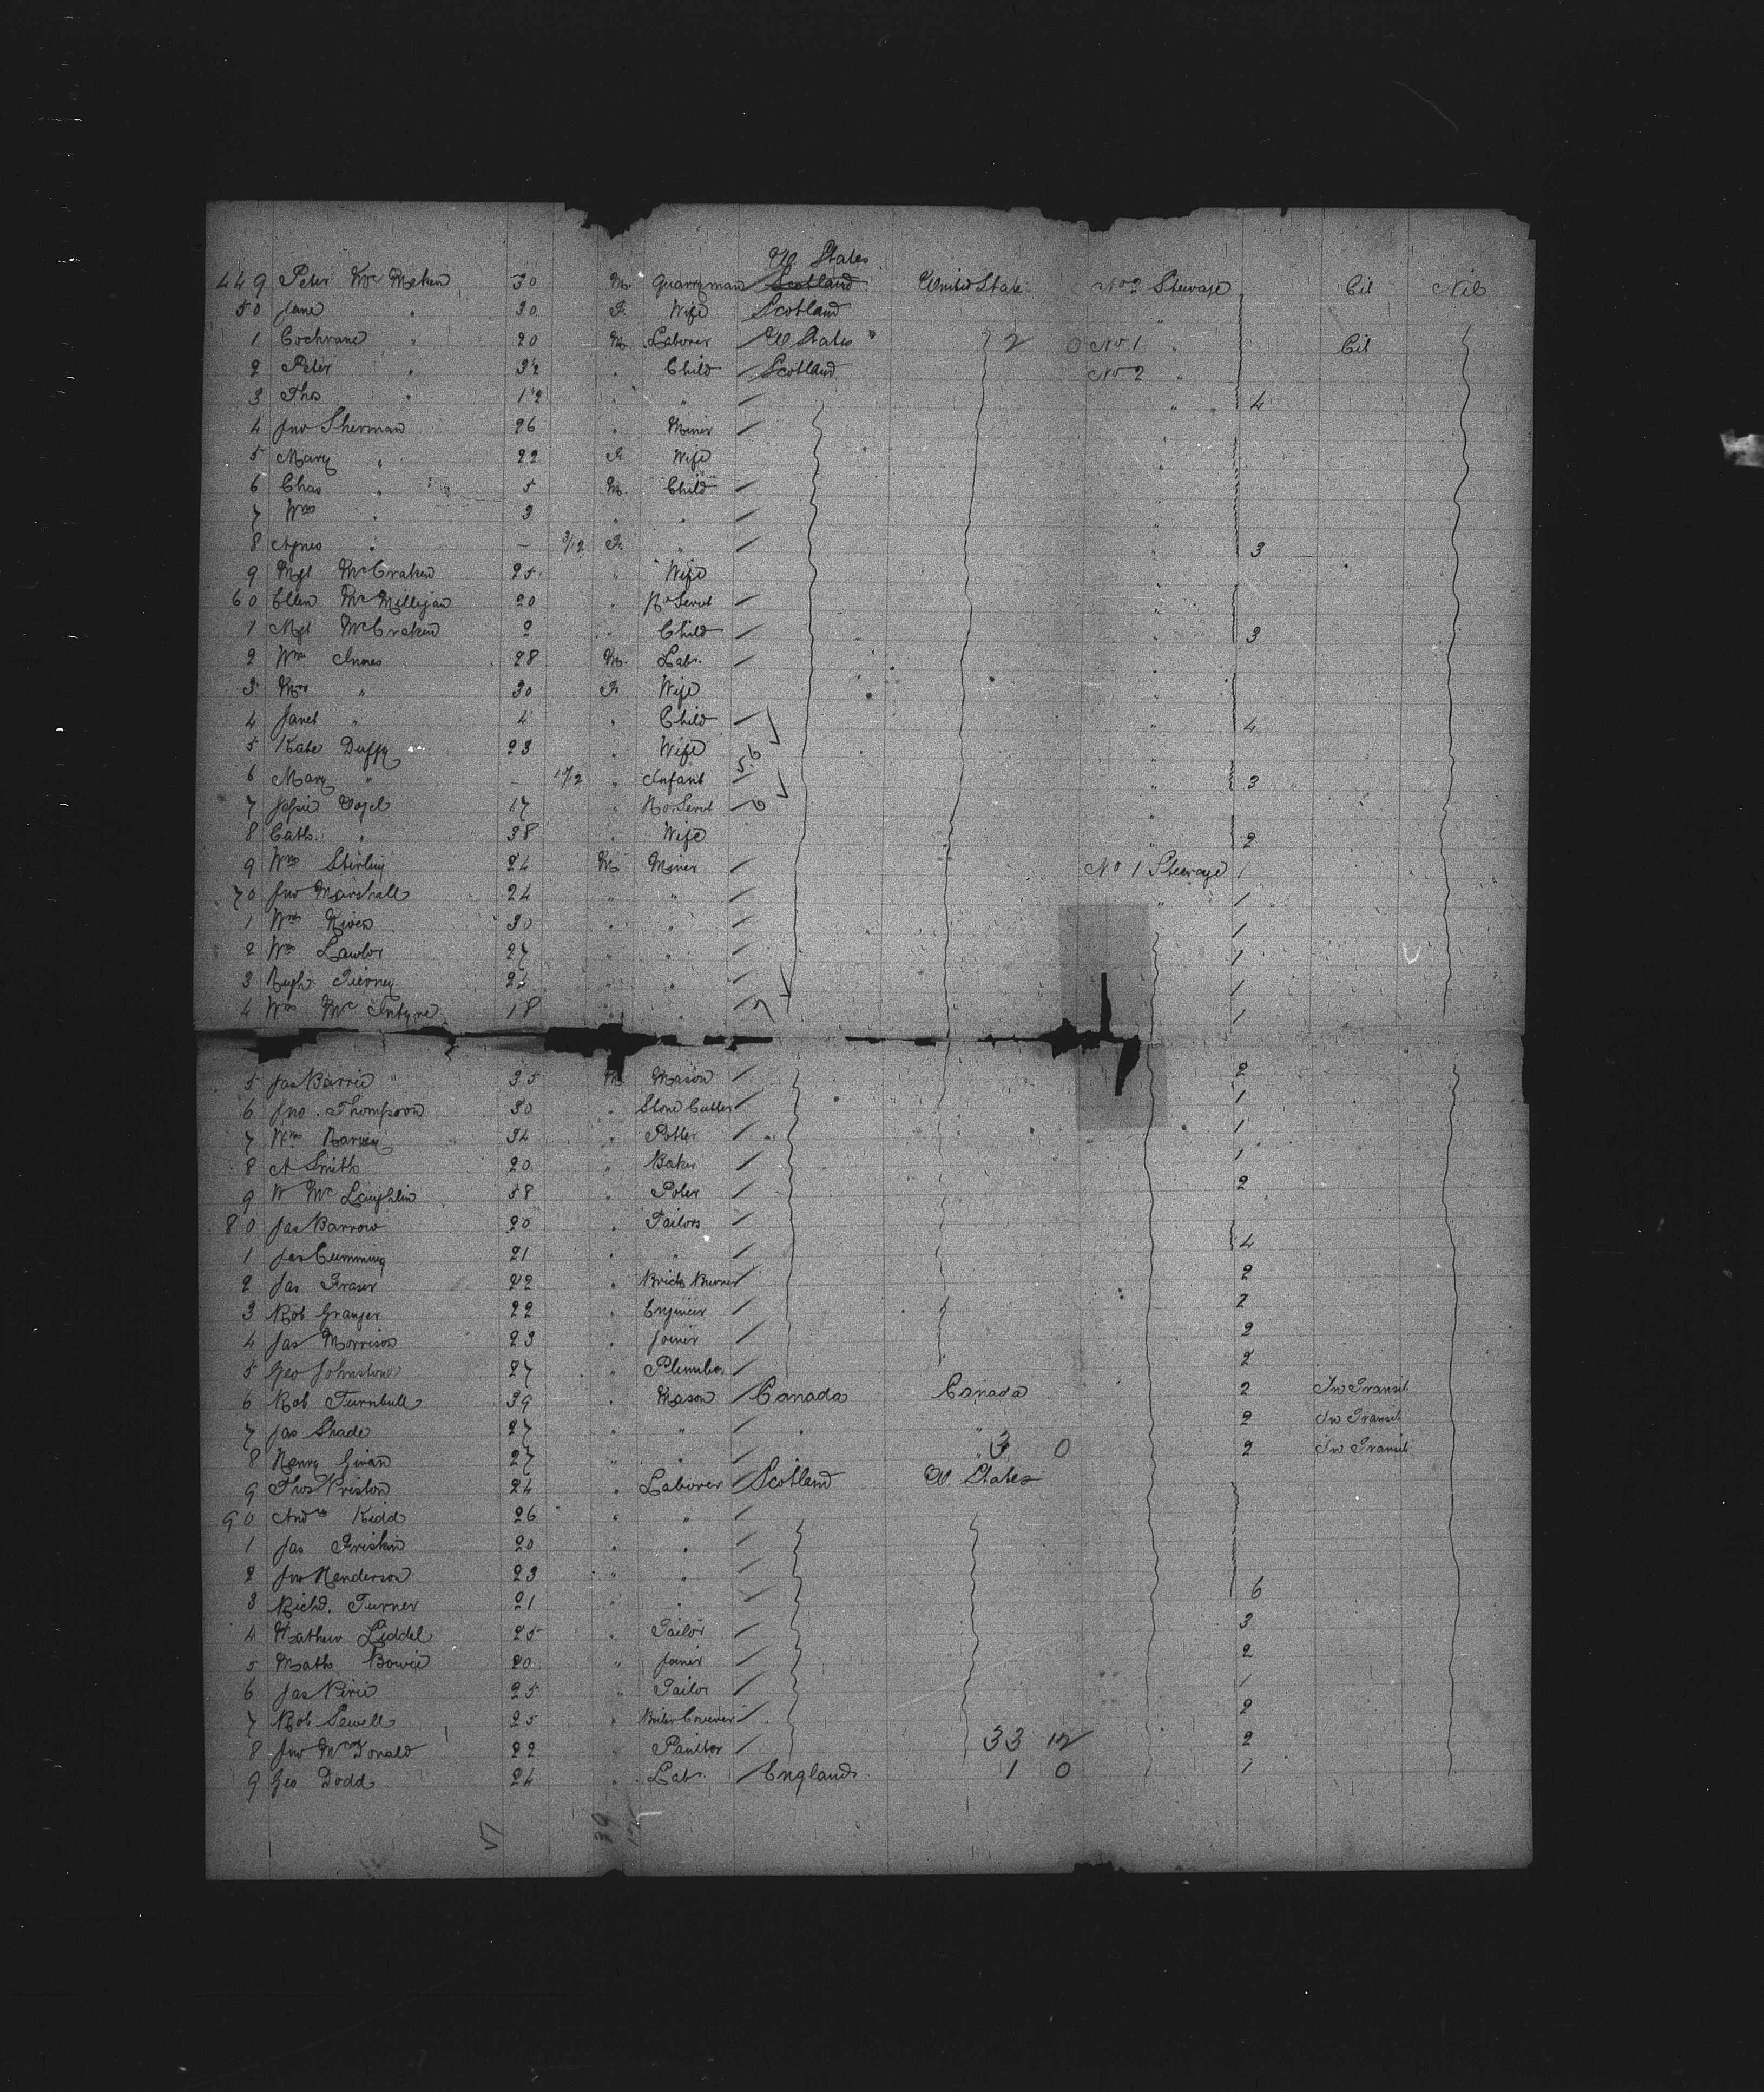 U. States
449 Peter McMeken 30 M Quarryman Scotland United State No 2 Steerage Cit Nil
50 Jane " 30 F. Wife Scotland "
1 Cochrane " 20 M Laborer U States " 2 0 No 1 " Cit
2 Peter " 3½ " Child Scotland No 2 "
3 Thos " 1½ " " " " 4
4 Jno Sherman 26 " Miner "
5 Mary " 22 F. Wife "
6 Chas " 5 M. Child "
7 Wm " 3 " " "
8 Agnes " - 3/12 F. " " 3
9 Mgt McCraken 25 " Wife "
60 Ellen McMillejan 20 " Ho Servt "
1 Mgt McCraken 2 " Child " 3
2 Wm Innes 28 M. Labr. "
3 Mrs " 30 F. Wife "
4 Janet " 4 " Child " 4
5 Kate Duffy 23 " Wife "
6 Mary " - " Infant " 3
7 17 " Ho. Servt "
8 Cath. " 38 " Wife " 2
9 Wm Stirling 24 M Miner No 1 Steerage 1
70 Jno Marshall 24 " " " 1
1 Wm 30 " " 1
2 Wm Lawlor 27 " " 1
3 Hugh Tierney " " 1
4 Wm McIntyre 18 " " 1
5 Jas Barrie 35 M Mason 2
6 Jno. Thompson 30 " Stone Cutter 1
7 Wm Harvey 34 " Potter 1
8 A Smith 20 " Baker 1
9 W McLaughlin 58 " Poter 2
80 Jas Barrow 20 " Tailors
1 Jas Cumming 21 " " 4
2 Jas Fraser 22 " Brick Burner 2
3 Rob Granger 22 " Engineer 2
4 Jas Morrison 23 " Joiner 2
5 Geo Johnston 27 " Plumber 2
6 Rob Turnbull 39 " Mason Canada Canada 2 In Transit
7 Jas Shade 27 " " " " 2 In Transit
8 Henry Givan 27 " " " " 3 0 2 In Transit
9 Thos Preston 24 " Laborer Scotland U States
90 Andw Kidd 26 " "
1 Jas Friskin 20 " "
2 Jno Henderson 23 " "
3 Richd. Turner 21 " " 6
4 Mathew Liddel 25 " Tailor 3
5 Math Bowie 20 " Joiner 2
6 Jas Pirie 25 " Tailor 1
7 Rob Sewell 25 " Boiler Coverer 2
8 Jno McDonald 22 " 33 12 2
9 Geo Dodd 24 " Labr. England 1 0 1
51 39 12